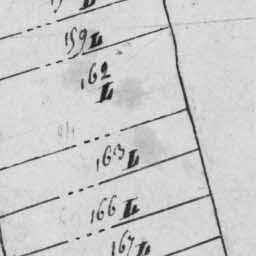 159 L
162
L
163 L
166 L
167 L